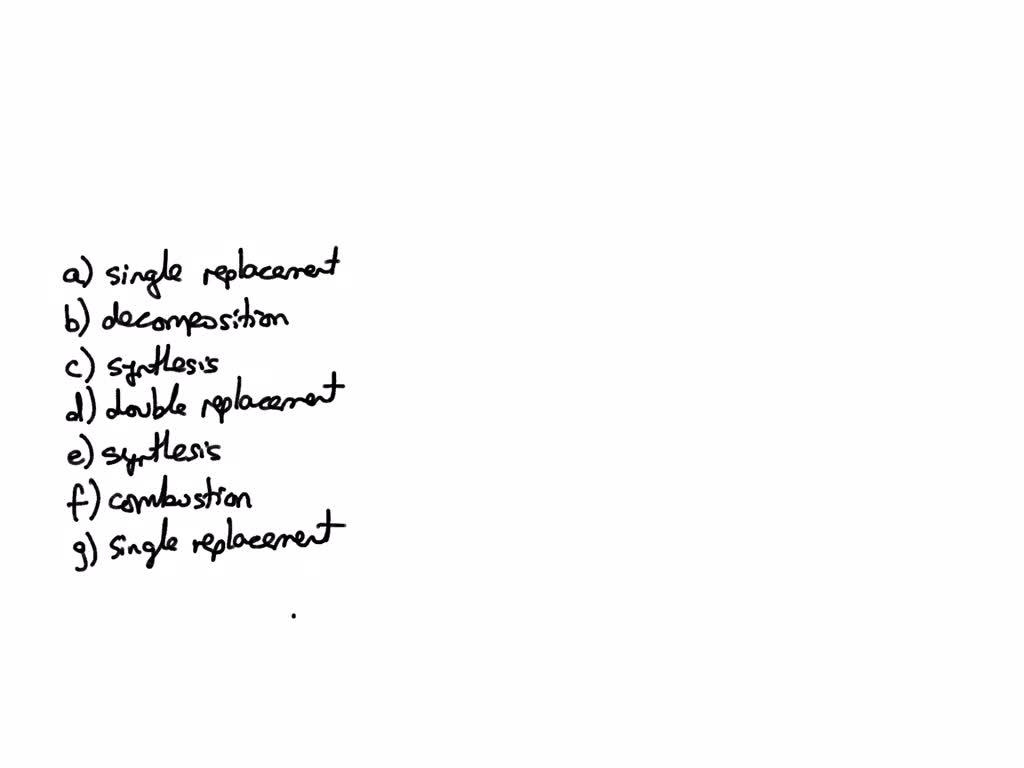 a) single replacement
b) decomposition
c) synthesis
d) double replacement
e) synthesis
f) combustion
g) single replacement